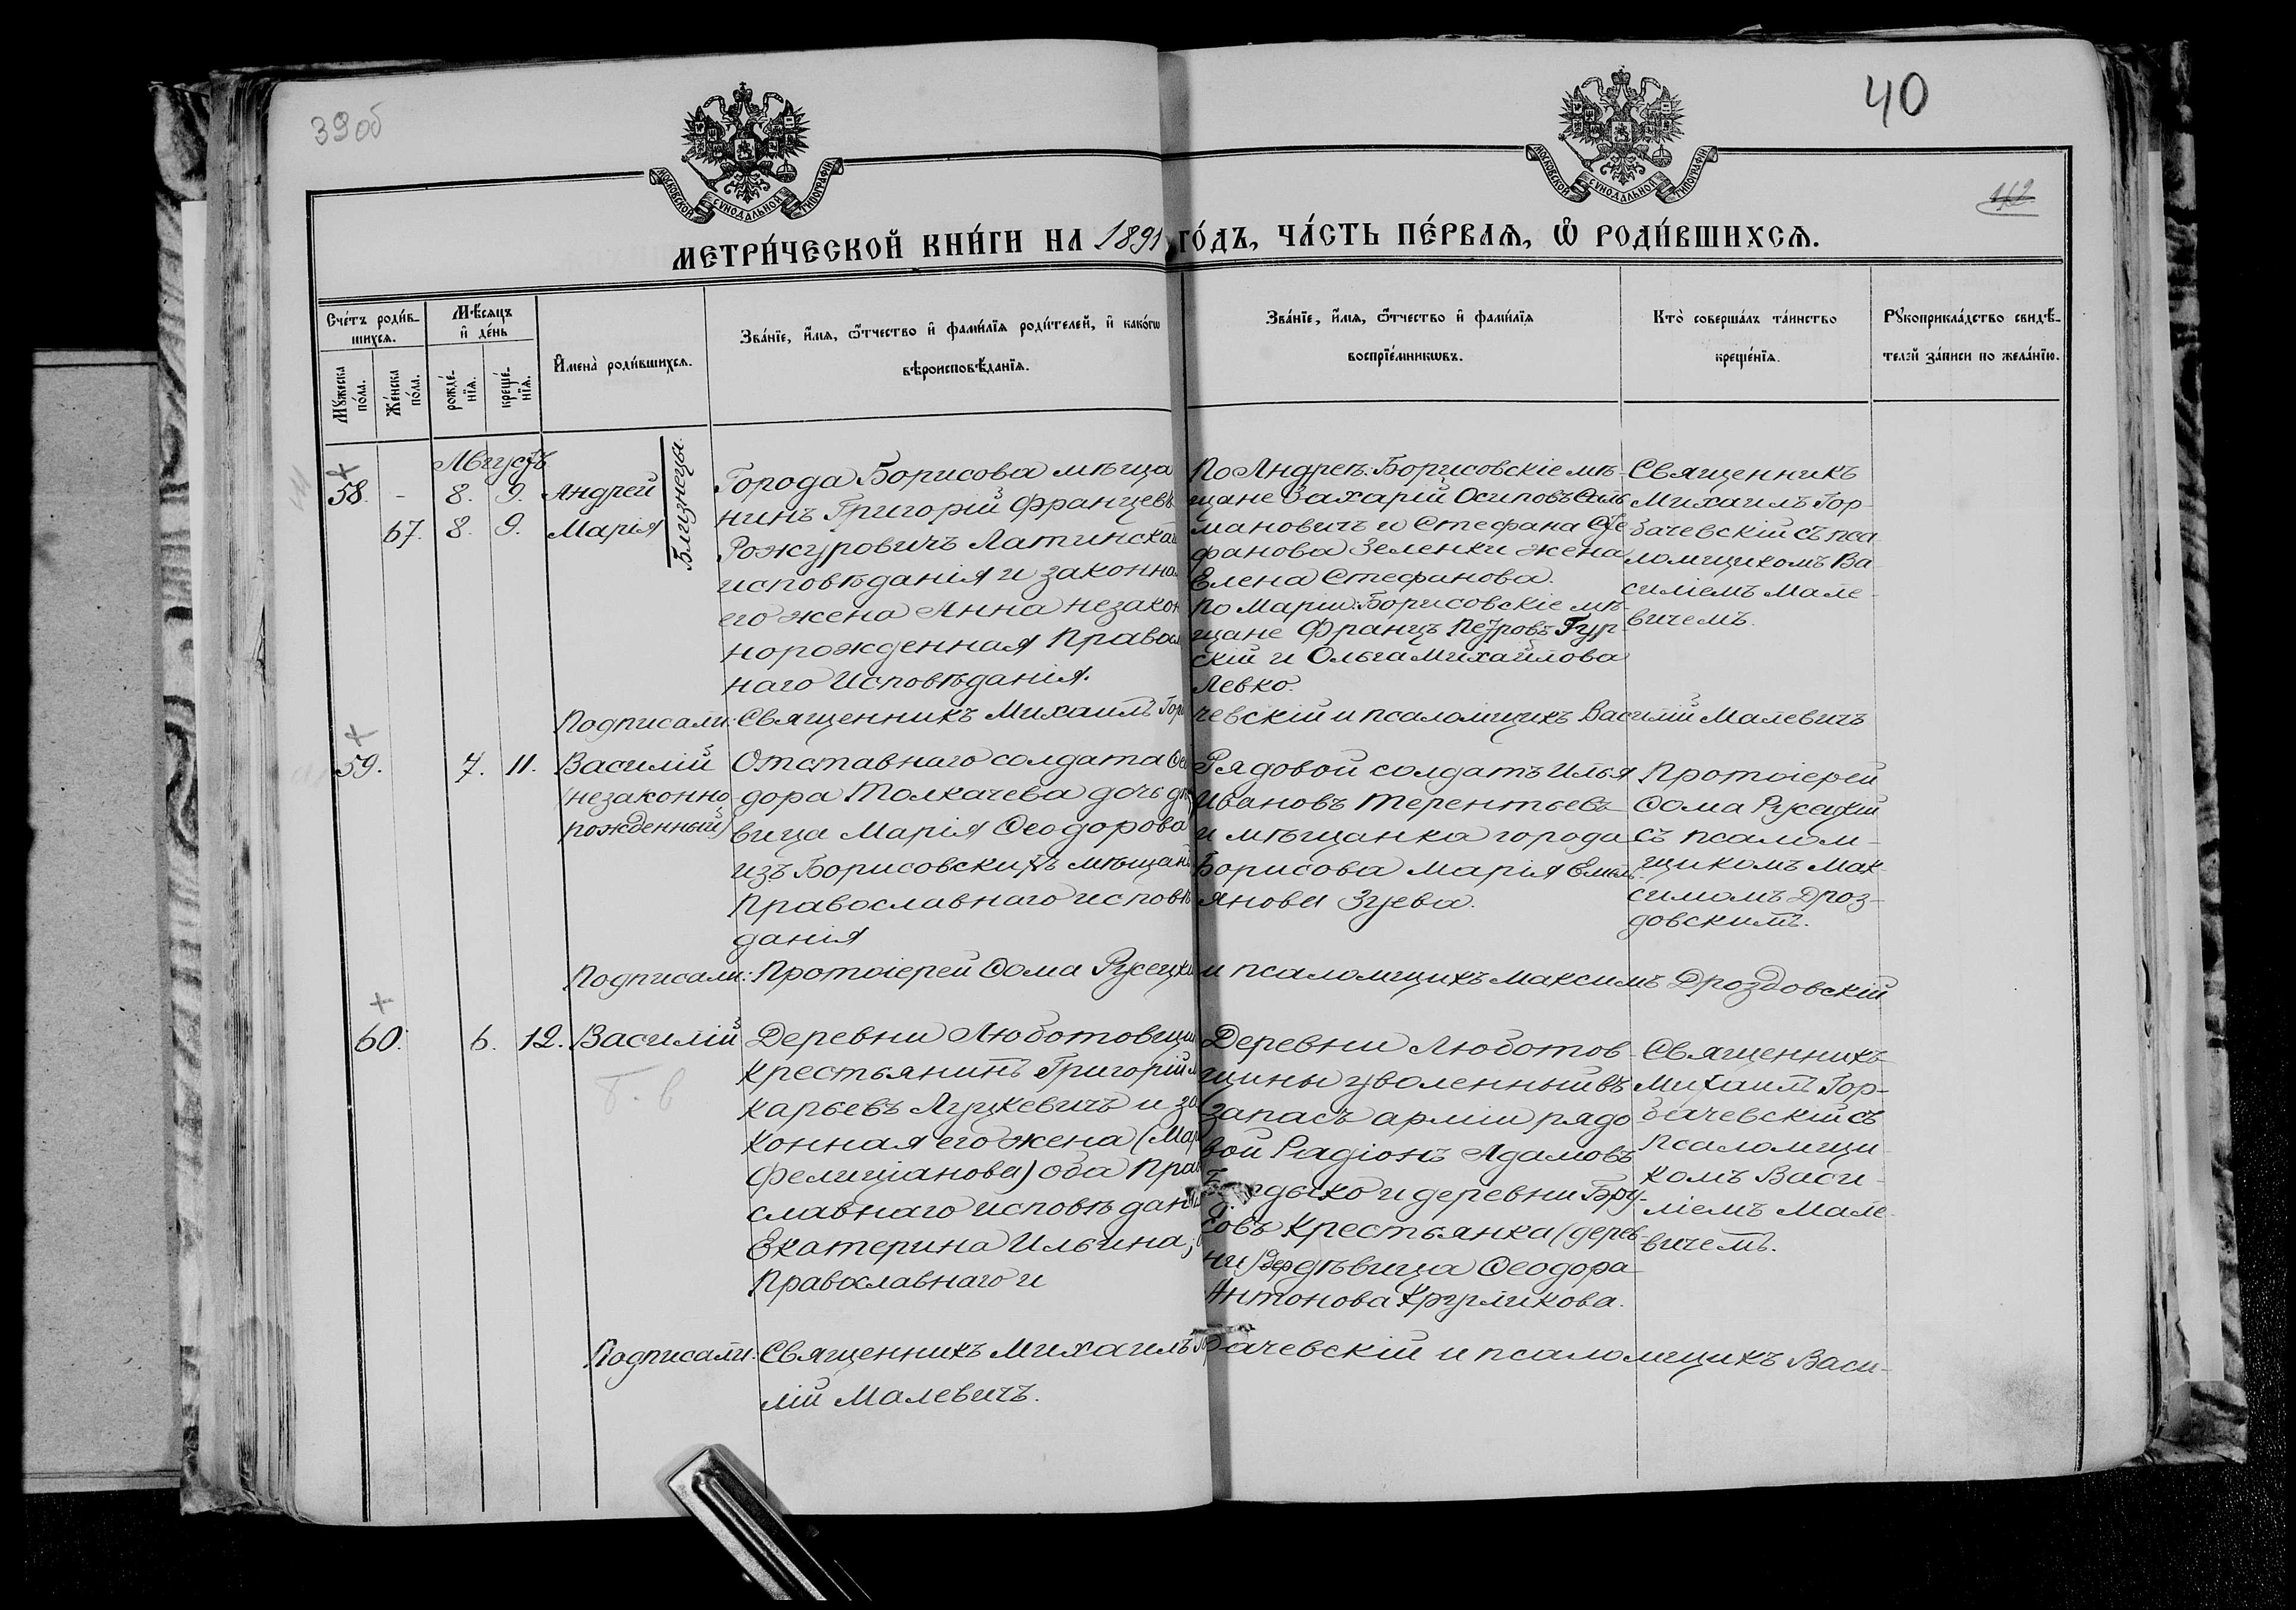 39 об
40
МОСКОВСКОЙ СѴНОДАЛЬНОЙ ТИПОГРАФІИ
МОСКОВСКОЙ СѴНОДАЛЬНОЙ ТИПОГРАФІИ
МЕТРИ́ЧЕСКОЙ КНИ́ГИ НА 1891 ГО́ДЪ, ЧА́СТЬ ПЕ́РВАѦ, Ѡ РОДИ́ВШИХСѦ.
Сче́тъ роди́в-
шихсѧ.
Мꙋ́жеска
по́ла.
Же́нска
по́ла.
Мѣ́сѧцъ
и҆ де́нь
рожде́-
нїѧ.
креще́-
нїѧ.
И҆мена̀ роди́вшихсѧ.
Зва́нїе, и҆́мѧ, ѻ҆́тчество и҆ фами́лїѧ роди́телей, и҆ како́гѡ
вѣроисповѣ́данїѧ.
Зва́нїе, и҆́мѧ, ѻ҆́тчество и҆ фами́лїѧ
воспрїе́мникѡвъ.
Кто̀ соверша́лъ та́инство
креще́нїѧ.
Рꙋкоприкла́дство свидѣ́-
телей за́писи по жела́нїю.
Августъ
58. - 8. 9. Андрей
67. 8. 9. Марія
Близнеца
Города Борисова мѣща
нинъ Григорій Францевъ
Рожуровичъ Латинска
исповѣданія и законна
его жена Анна незакон
норожденная Правосл
наго Исповѣданія.
По Андреѣ: Борисовскіе мѣ-
щане Захарій Осиповъ
мановичъ и Стефана Сте
фанова Зеленки жена
Елена Стефанова.
По Маріи: Борисовскіе мѣ-
щане Францъ Петровъ Гур-
скій и Ольга Михайлова
Левко.
Священникъ
Михаилъ Гор-
бачевскій съ пса
ломщикомъ Ва
силіемъ Мале-
вичемъ.
Подписали: Священникъ Михаилъ Горб чевскій и псаломщикъ Василій Малевичъ
59. 7. 11. Василій
(незаконно
рожденный)
Отставнаго солдата Ѳео
дора Толкачева дочь дѣ
вица Марія Ѳеодорова
изъ Борисовскихъ мѣщанъ
Православнаго исповѣ
данія
Рядовой солдатъ Илья
Ивановъ Терентьевъ
и мѣщанка города
Борисова Марія Емель-
янова Зуева.
Протоіерей
Ѳома Русецкій
съ псалом-
щикомъ Мак-
симомъ Дроз-
довскимъ.
Подписали: Протоіерей Ѳома Русецкій и псаломщикъ Максимъ Дроздовскій
60. 6. 12. Василій
Деревни Любатовщи
крестьянинъ Григорій
карьевъ Луцкевичъ и за
конная его жена (Мар
Фелиціанова) оба Прав
славнаго исповѣдан
Екатерина Ильина;
Православнаго и
Деревни Люботов-
щины уволенный въ
запасъ арміи рядо
вой Радіонъ Адамовъ
дыко и деревни Бру-
совъ крестьянка (дерев-
ни) дѣвица Ѳеодора
Антонова Кругликова.
Священникъ
Михаилъ Гор-
бачевскій съ
псаломщи-
комъ Васи-
ліемъ Мале-
вичемъ.
Подписали: Священникъ Михаилъ Горбачевскій и псаломщикъ Васи-
лій Малевичъ.